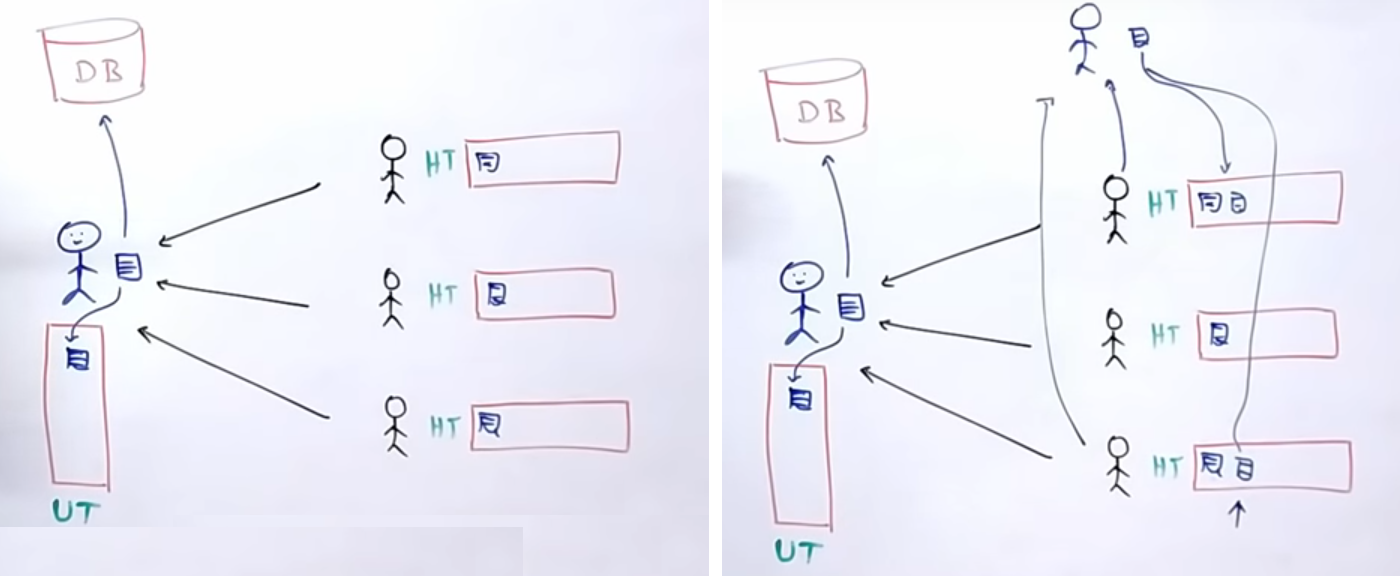 DB
HT
HT
HT
UT
DB
HT
HT
HT
UT